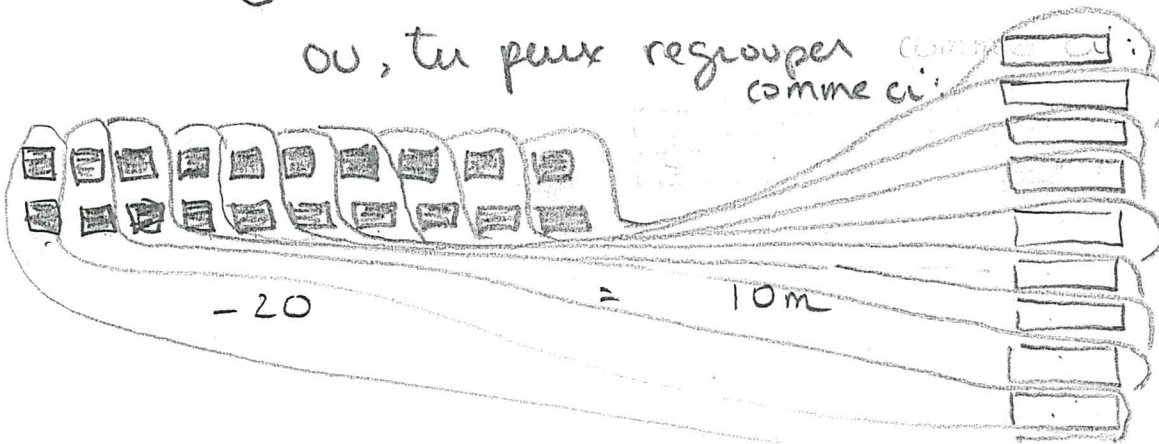 ou, tu peux regrouper
comme ci:
-20 = 10m